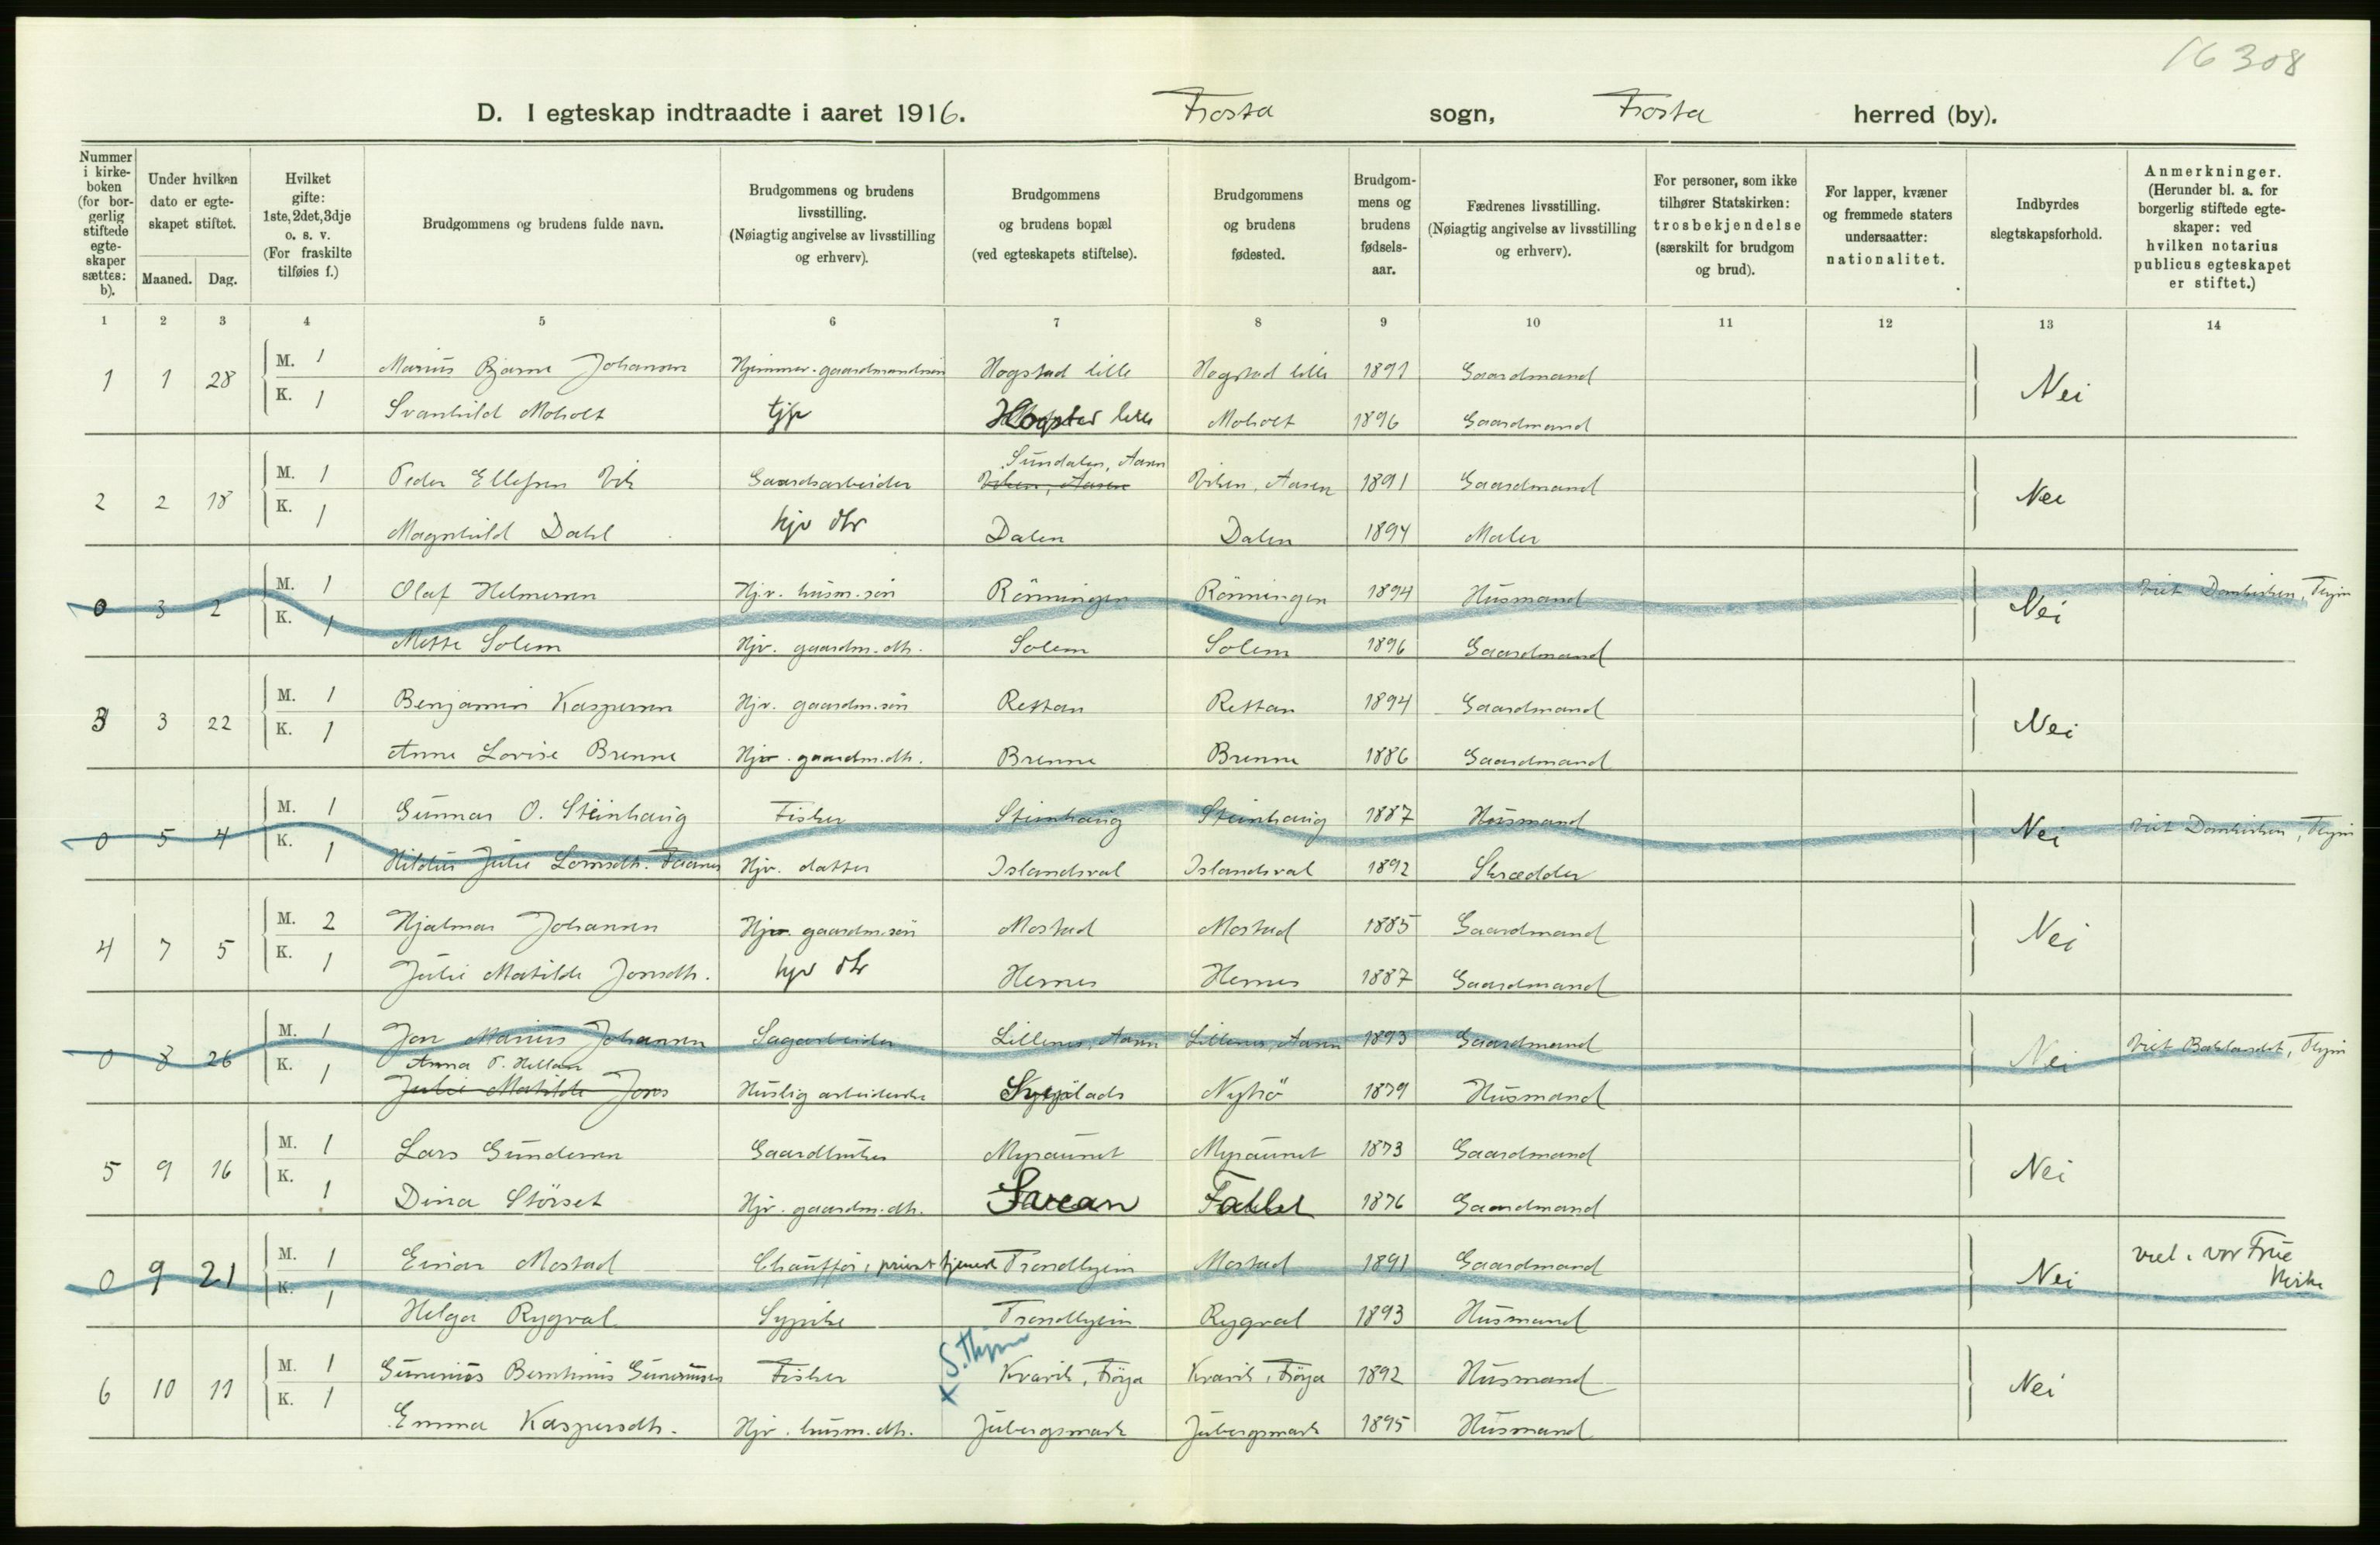 16308
D. I egteskap indtraadte i aaret 1916. Frosta sogn, Frosta herred (by).
Nummer i kirkeboken (for borgerlig stiftede egteskaper sættes: b).
Under hvilken dato er egteskapet stiftet.
Maaned. Dag.
Hvilket gifte: 1ste, 2det, 3dje o. s. v. (For fraskilte tilføies f.)
Brudgommens og brudens fulde navn.
Brudgommens og brudens livsstilling. (Nøiagtig angivelse av livsstilling og erhverv).
Brudgommens og brudens bopæl (ved egteskapets stiftelse).
Brudgommens og brudens fødested.
Brudgommens og brudens fødselsaar.
Fædrenes livsstilling. (Nøiagtig angivelse av livsstilling og erhverv).
For personer, som ikke tilhører Statskirken: trosbekjendelse (særskilt for brudgom og brud).
For lapper, kvæner og fremmede staters undersaatter: nationalitet.
Indbyrdes slegtskapsforhold.
Anmerkninger. (Herunder bl. a. for borgerlig stiftede egteskaper: ved hvilken notarius publicus egteskapet er stiftet.)
1 2 3 4 5 6 7 8 9 10 11 12 13 14
1 1 28 M. 1 Marius Bjarne Johansen Hjemmev. gaardmandssön Hogstad lille Hogstad lille 1891 Gaardmand Nei
K. 1 Svanhild Moholt tjp Hogstad lille Moholt 1896 Gaardmand
Sundalen, Aasen
2 2 18 M. 1 Peder Ellefsen Vik Gaardsarbeider Viken, Aasen Viken, Aasen 1891 Gaardmand Nei
K. 1 Magnhild Dahl hjv dtr Dalen Dalen 1894 Maler
0 3 2 M. 1 Olaf Helmersen Hjv. husm. sön Rönningen Rönningen 1894 Husmand Nei Viet Domkirken, Thjm
K. 1 Mette Solem Hjv. gaardm. dtr. Solem Solem 1896 Gaardmand
3 3 22 M. 1 Benjamin Kaspersen Hjv. gaardm. sön Rettan Rettan 1894 Gaardmand Nei
K. 1 Anna Lovise Brenne Hjv. gaardm. dtr. Brenne Brenne 1886 Gaardmand
0 5 4 M. 1 Gunnar O. Steinhaug Fisker Steinhaug Steinhaug 1887 Husmand Nei Viet Domkirken, Thjm
K. 1 Julie Hjv. datter Islandsval Islandsval 1892 Skrædder
4 7 5 M. 2 Hjalmar Johansen Hjv. gaardm. sön Mostad Mostad 1885 Gaardmand Nei
K. 1 Julie Matilde Jonsdtr. hjv dtr Hernes Hernes 1887 Gaardmand
0 8 26 M. 1 Jon Marius Johansen Sagarbeider Lillenes, Aasen Lillenes, Aasen 1893 Gaardmand Nei Viet Baklandet, Thjm
Anna P. Hellan
K. 1 Julie Matilde Jons Huslig arbeiderske Nytrö 1879 Husmand
5 9 16 M. 1 Lars Gundersen Gaardbruker Myraunet Myraunet 1873 Gaardmand Nei
K. 1 Dina Störset Hjv. gaardm. dtr. 1876 Gaardmand
0 9 21 M. 1 Einar Mostad Chaufför, privat tjeneste Trondhjem Mostad 1891 Gaardmand Nei viet i vor Frue Kirke
K. 1 Helga Rygval Sypike Trondhjem Rygval 1893 Husmand
x S. Thjem
6 10 11 M. 1 Gunerius Bernhus Gunerussen Fisker Kvarik, Fröya Kvarik, Fröya 1892 Husmand Nei
K. 1 Emma Kaspersdtr. Hjv. husm. dtr. Jubergsmark Jubergsmark 1895 Husmand